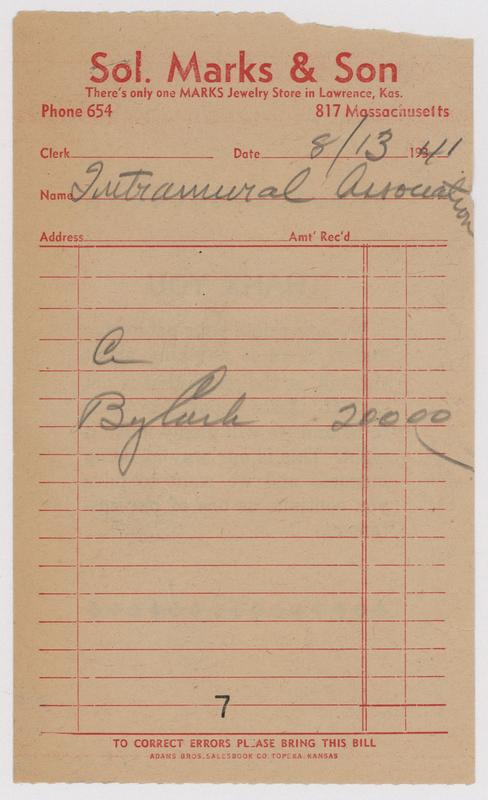 Sol. Marks & Son
There's only one MARKS Jewelry Store in Lawrence, Kas.
Phone 654 817 Massachusetts
Clerk Date 8/13 1941
Name Intramural Association
Address Amt' Rec'd
Cr
By Cash 200 00
7
TO CORRECT ERRORS PLEASE BRING THIS BILL
ADAMS BROS. SALESBOOK CO. TOPEKA, KANSAS